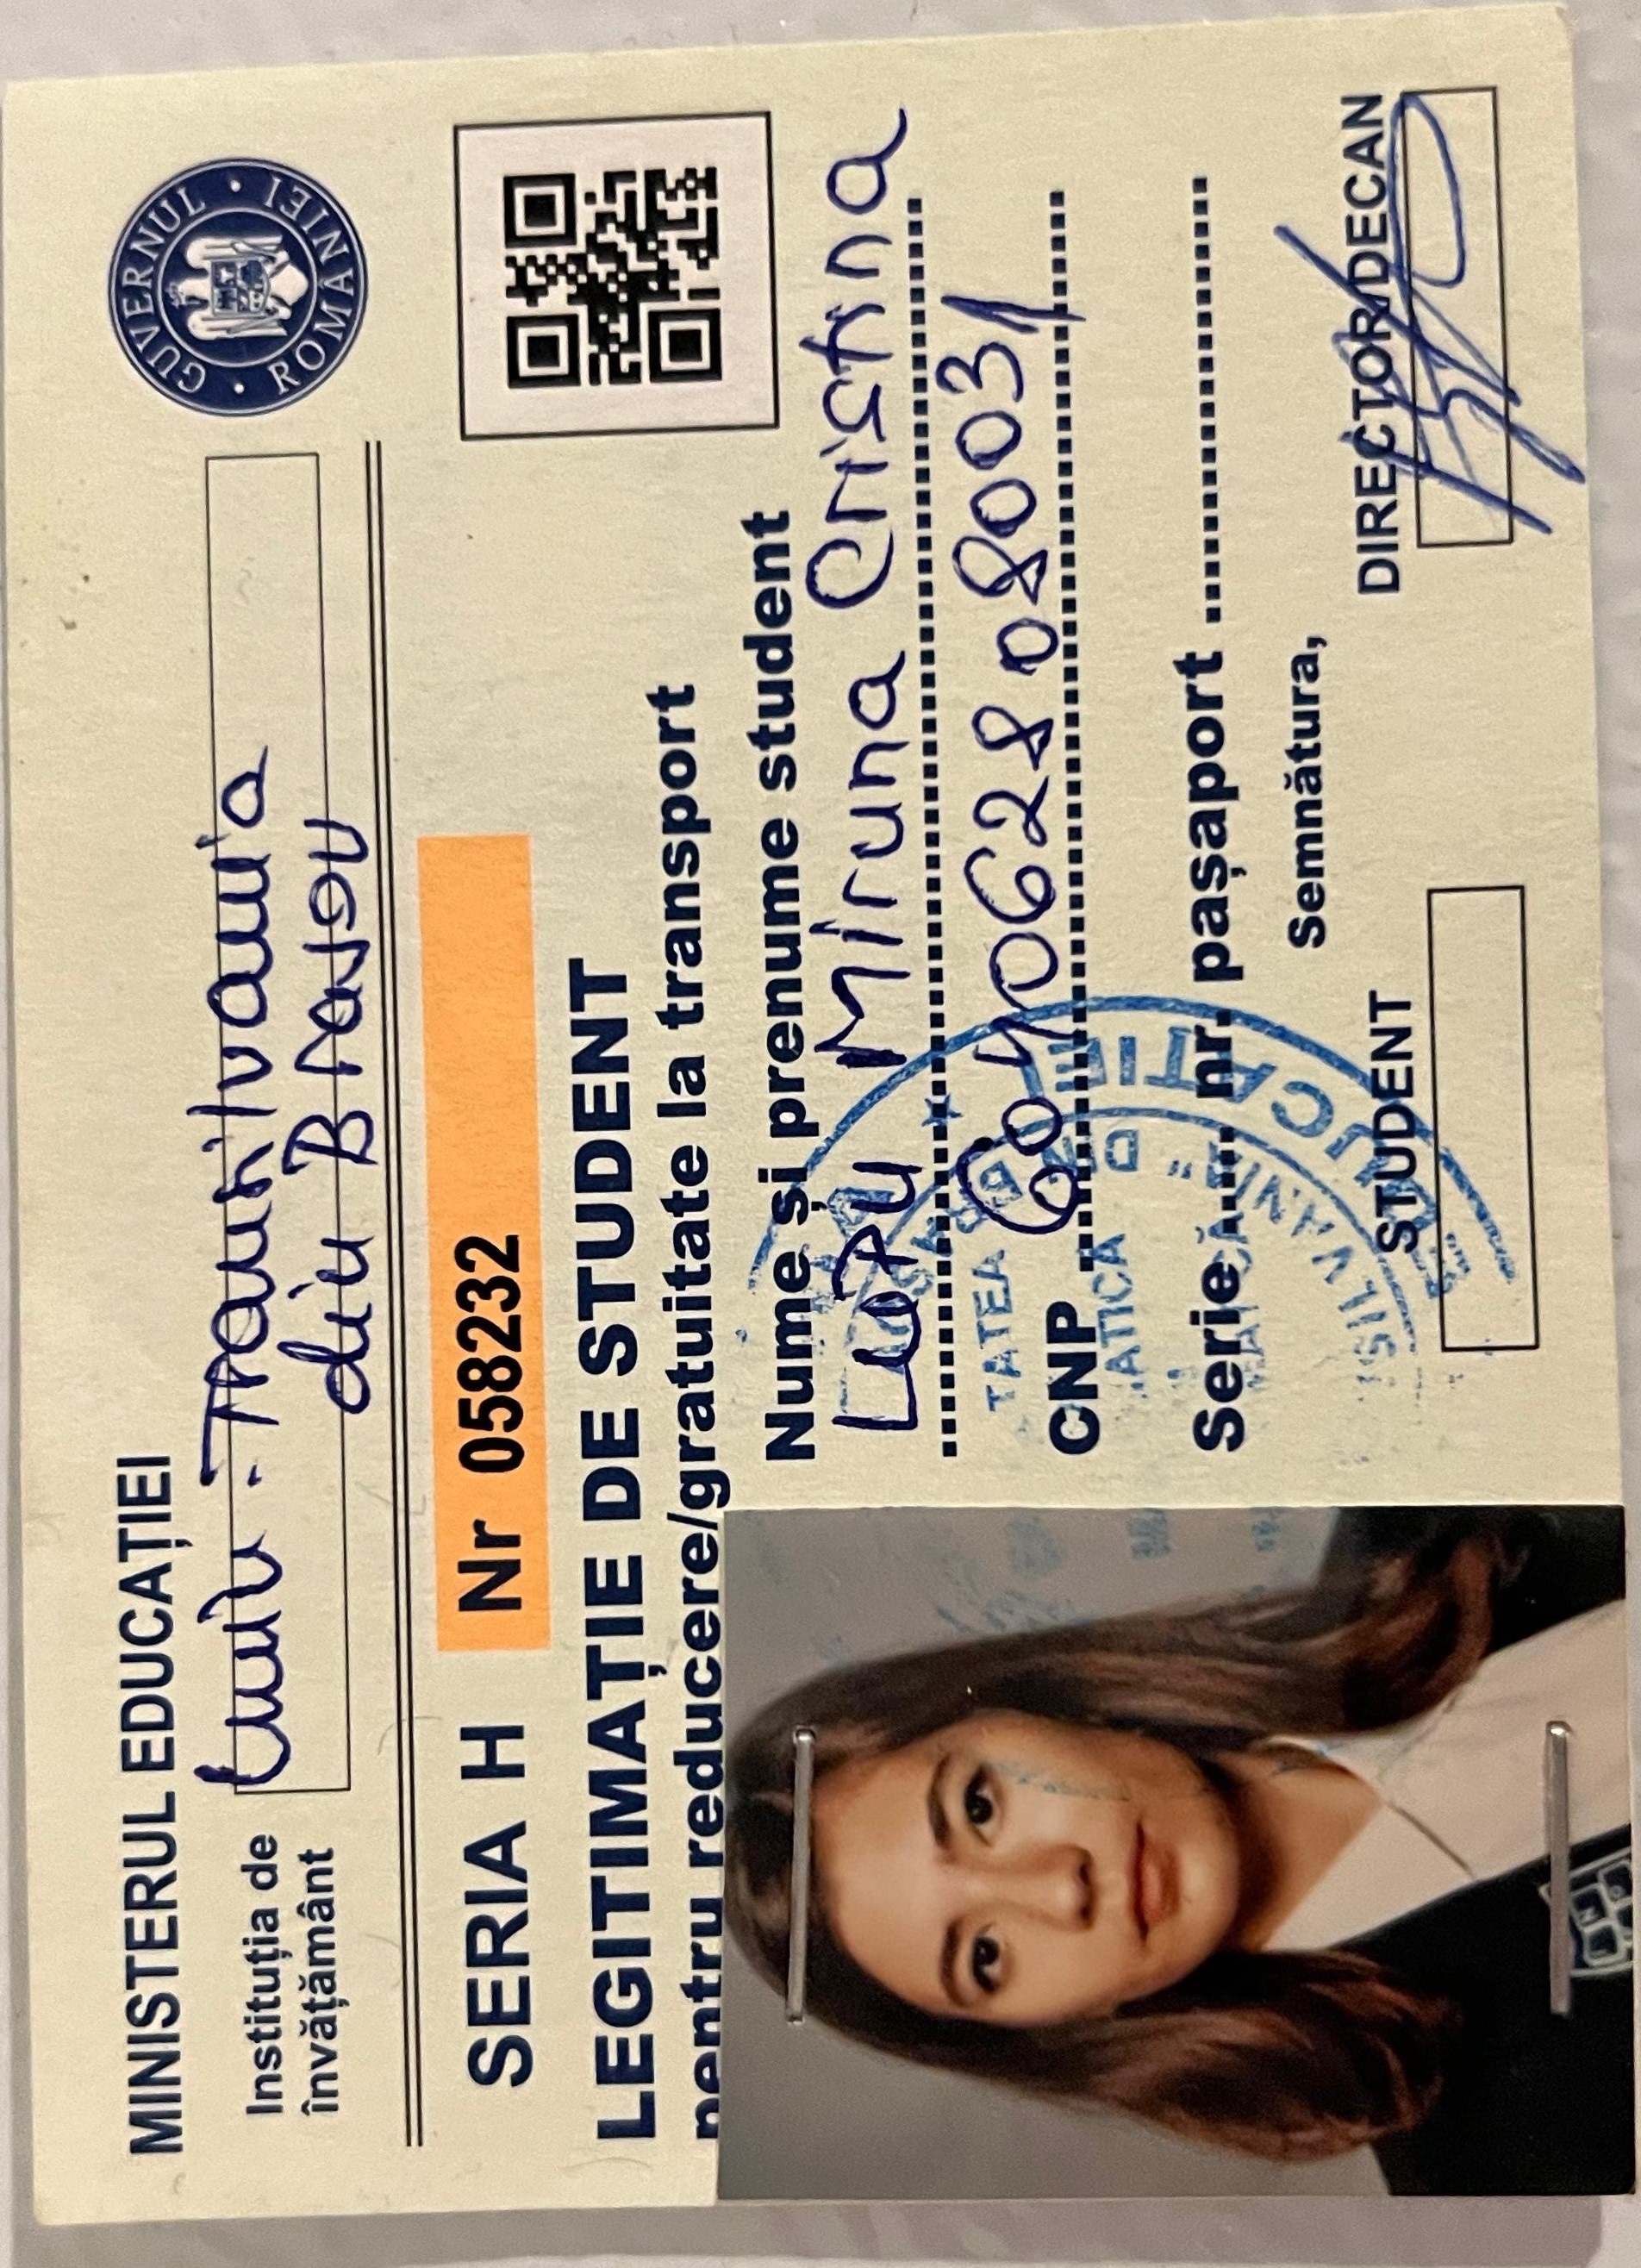 MINISTERUL EDUCAȚIEI
GUVERNUL ROMÂNIEI
Instituția de învățământ
Univ. Transilvania
din Brașov
SERIA H Nr 058232
LEGITIMAȚIE DE STUDENT
pentru reducere/gratuitate la transport
Nume și prenume student
Lupu Miruna Cristina
CNP 6040628080031
Serie nr. pașaport
Semnătura,
STUDENT
DIRECTOR/DECAN